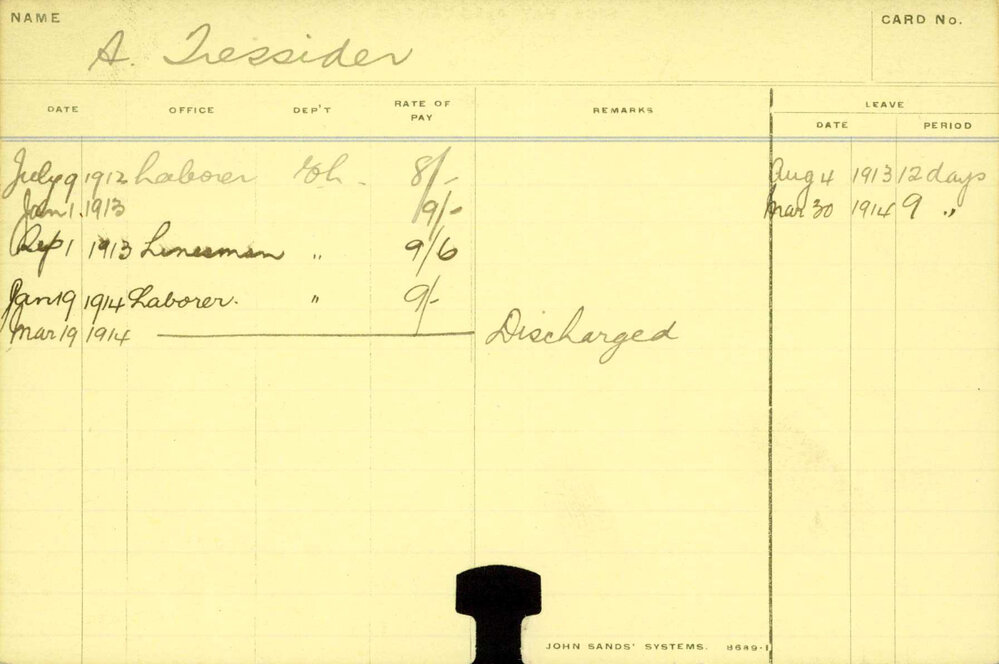 NAME
CARD No.
A. Tressider
DATE OFFICE DEP'T RATE OF PAY REMARKS LEAVE
DATE PERIOD
July 9 1912 Laborer 8/- Aug 4 1913 12 days
Jan 1. 1913 9/- Mar 30 1914 9 "
Sep 1 1913 Linesman " 9/6
Jan 19 1914 Laborer. " 9/-
Mar 19 1914 Discharged
JOHN SANDS' SYSTEMS. 8689-